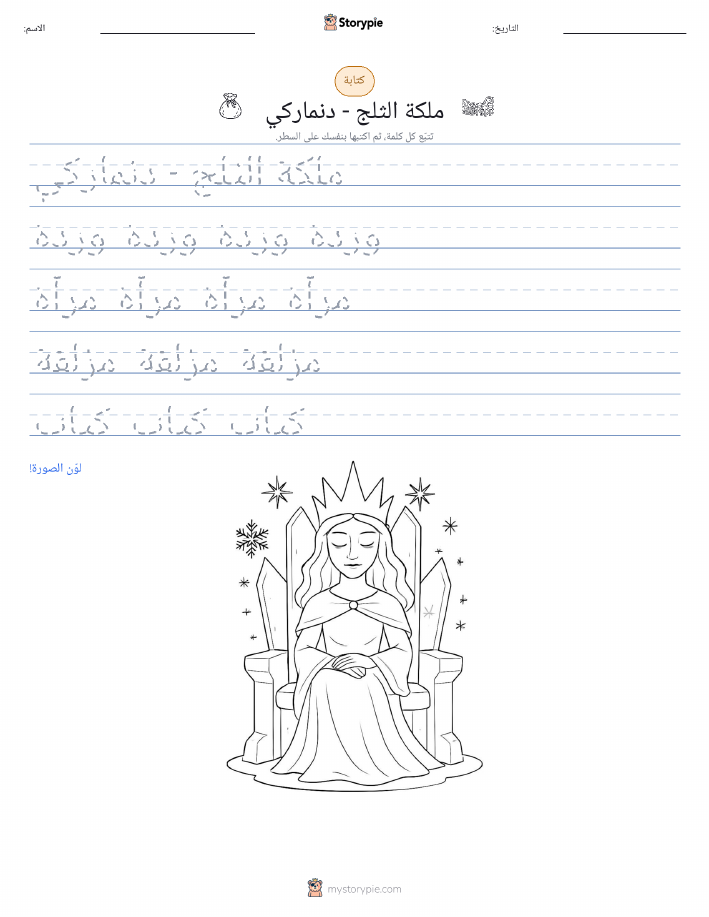 الاسم:
Storypie
التاريخ:
كتابة
ملكة الثلج - دنماركي
تتبّع كل كلمة، ثم اكتبها بنفسك على السطر.
ملكة الثلج - دنماركي
وردة وردة وردة وردة
مرآة مرآة مرآة مرآة
مزلقة مزلقة مزلقة
كتاب كتاب كتاب
لوّن الصورة!
mystorypie.com